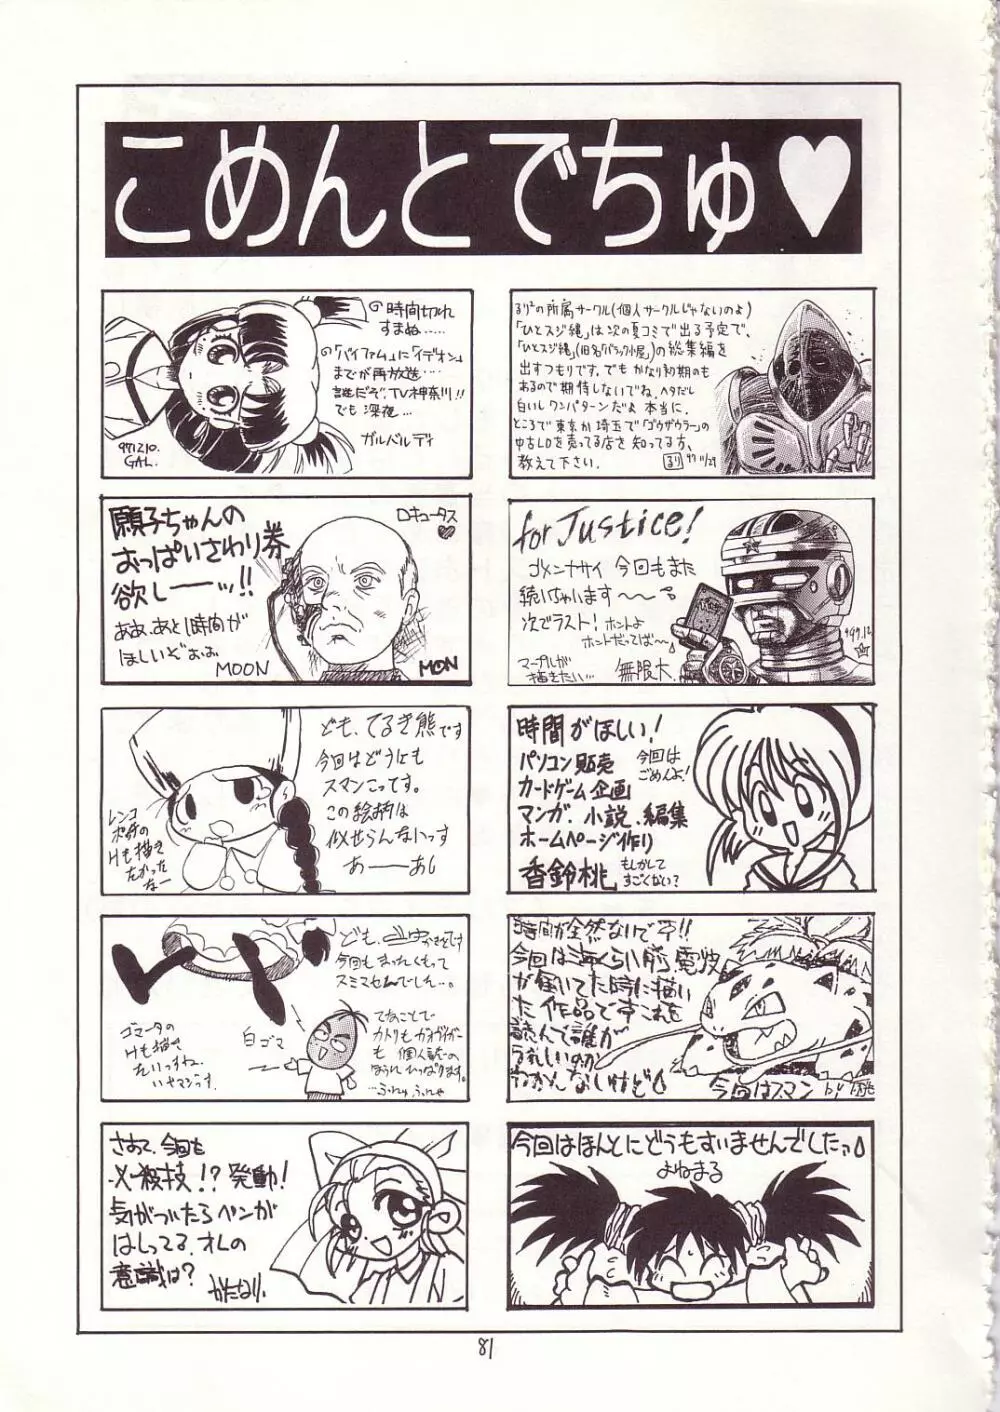 こめんとでちゅ♥
◎時間切れ
すまぬ……
◎「バイファム」に「イデオン」
までが再放送…
誰だぞ、TV神奈川!!
でも深夜…
ガルベルディ
971210.
GAL.
るり²の所属サークル(個人サークルじゃないのよ)
「ひとスジ縄」は次の夏コミで出る予定で、
「ひとスジ縄」(旧名「バラック小屋」)の総集編を
出すつもりです。でも かなり初期のも
あるので期待しないでね。ヘタだし
白いしワンパターンだよ 本当に。
ところで東京か埼玉で「ゴウザウラー」の
中古LDを売ってる店を知ってる方、
教えて下さい。
るり 97 11/29
願子ちゃんの
おっぱいさわり券
欲しーーッ!!
ああ、あと1時間が
ほしいぞぉぉ
MOON
ロキュータス
♥
MOON
for Justice!
ゴメンナサイ 今回もまた
続いちゃいます〜〜
次でラスト! ホントよ
ホントだってば〜
マープルが
描きたい…
無限大.
ども、てるき熊です
今回はどうにも
スマンこってす。
この絵柄は
似せらんないっす
あーーあし
レンコ
Hも描き
たかった
なー
時間がほしい!
パソコン販売
カードゲーム企画
マンガ、小説、編集
ホームページ作り
香鈴桃
今回は
ごめんよ!
もしかして
すごくない?
今回もまったくもって
スミマセんでしん…。
ゴマータの
Hも描き
たいっすね。
いヤマジっす。
白ゴマ
てなことで
カトリもガオガイガー
も 個人誌の
ほうれひっぱります。
…ふんゅふんゃ
時間が全然ないです!!
今回は海くらい前、電波
が届いてた時に描い
た作品ですこれを
読んで誰が
うれしいのか
わかんないけど
今回はスマン
by
さあて、今回も
必殺技!?発動!
気がついたらペンが
はしってる、オレの
意識は?
かたなり.
今回はほんとにどうもすいませんでしたっ
よねまる
81